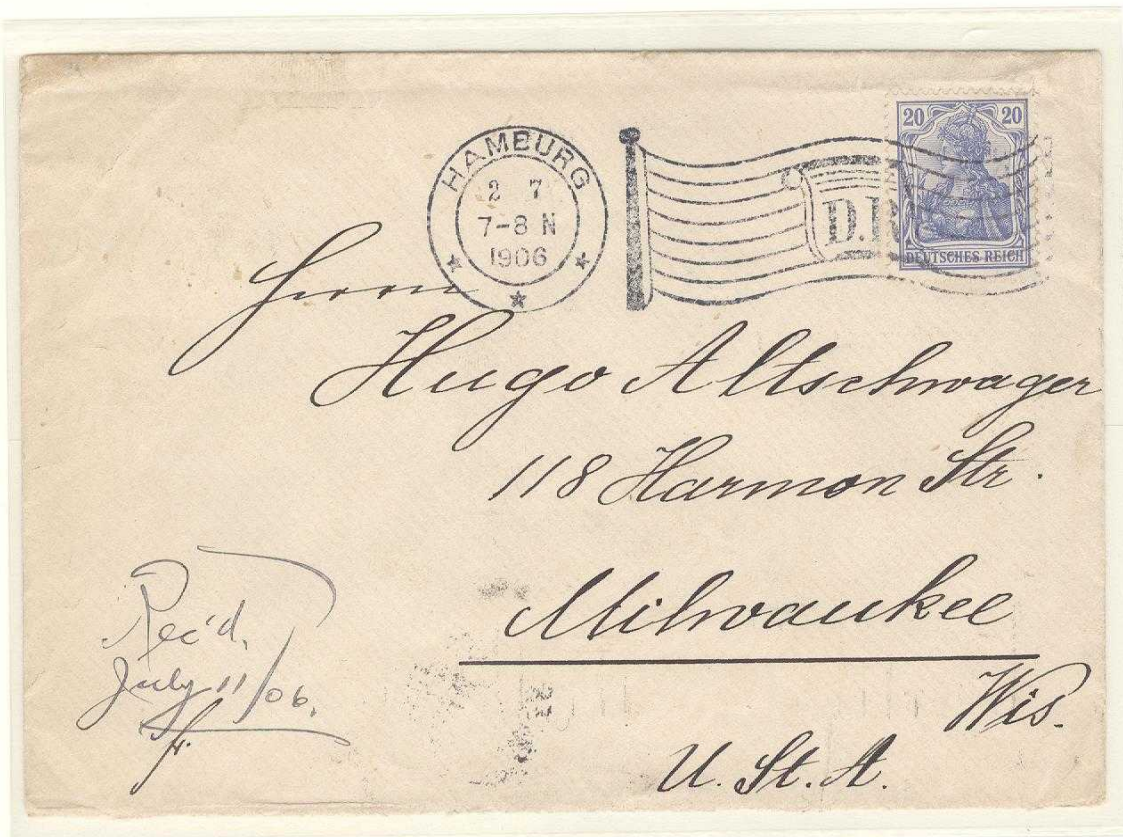 HAMBURG
2 7
7-8 N
1906
D.R
20 20
DEUTSCHES REICH
Herrn
Hugo Altschwager
118 Harmon Str.
Milwaukee
Wis.
U. St. A.
Rec'd,
July 11/06.